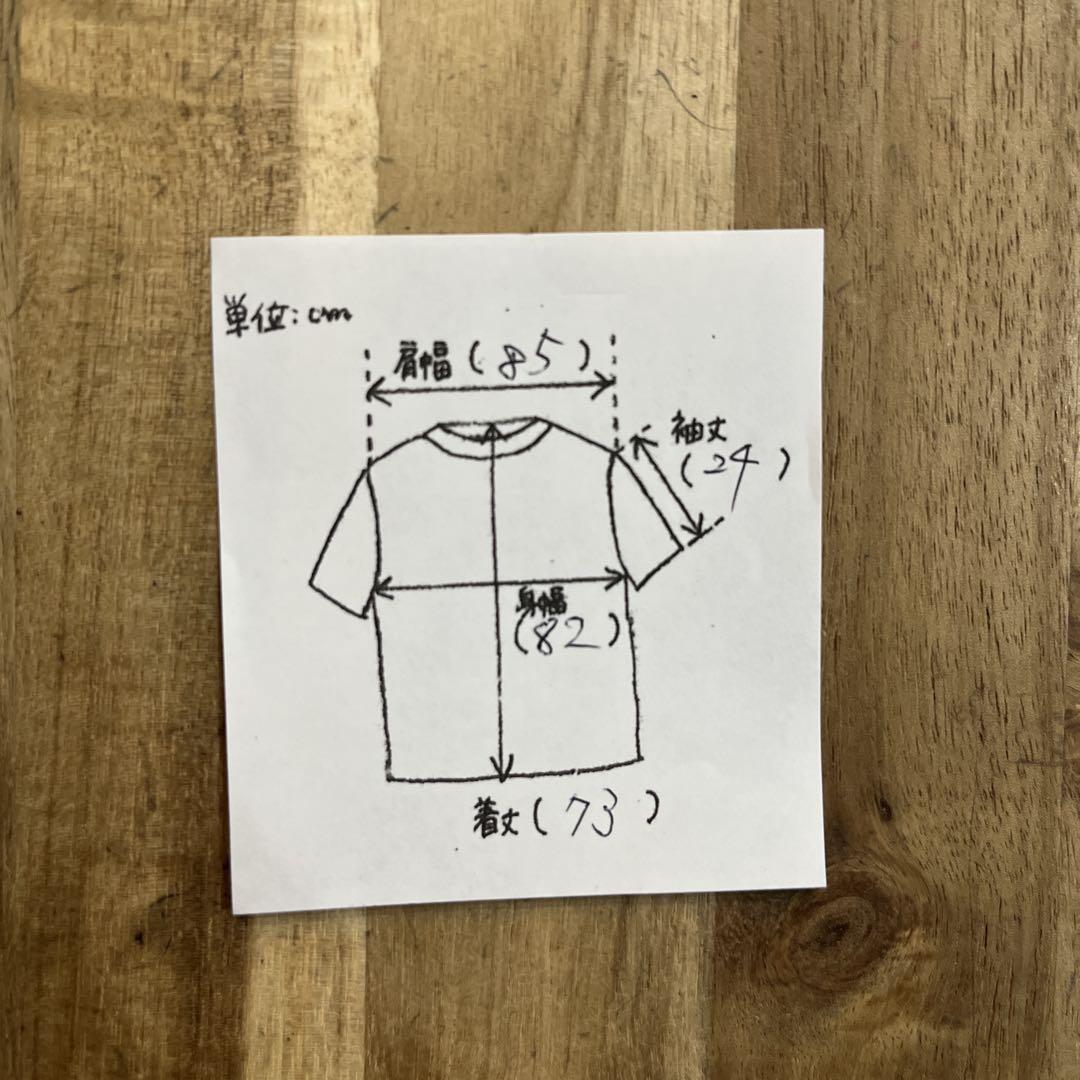 単位:cm
肩幅(85)
袖丈
(24)
身幅
(82)
着丈(73)